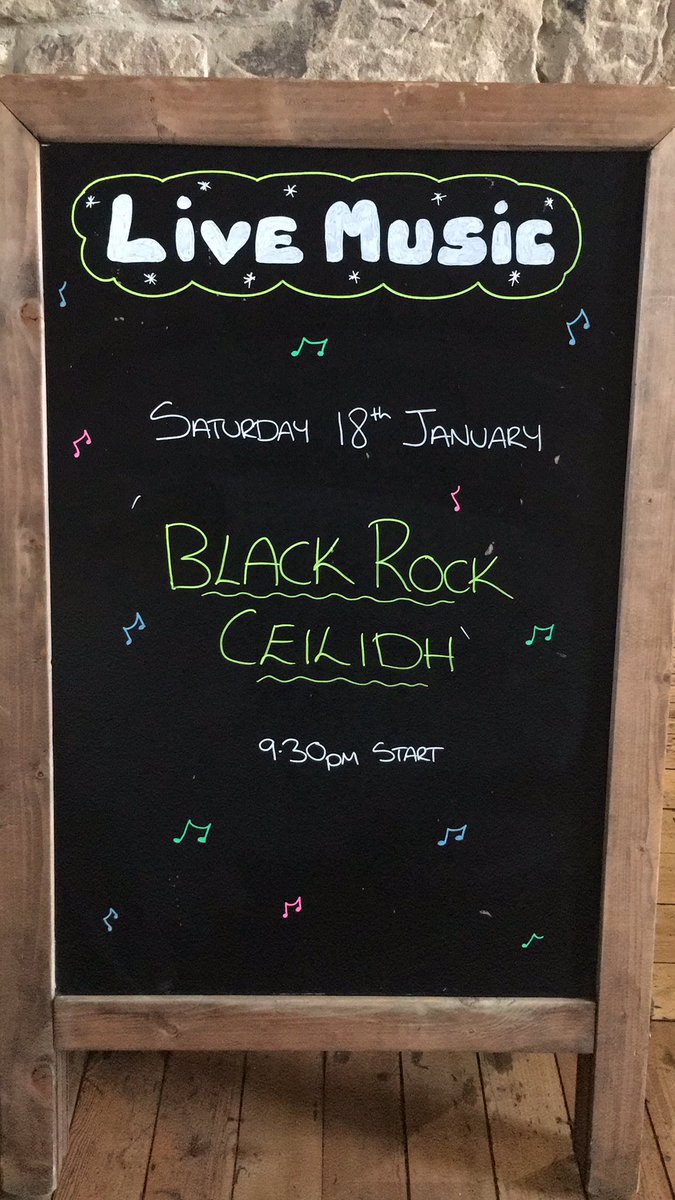 LIVE MUSIC
SATURDAY 18th JANUARY
BLACK ROCK
CEILIDH
9.30pm START